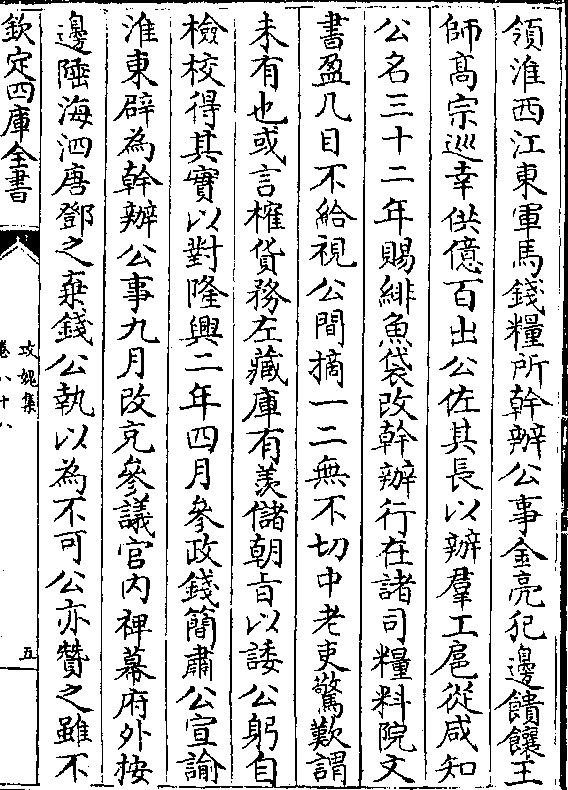 領淮西江東軍馬錢糧所幹辦公事金亮犯邊饋饟王
師高宗巡幸供億百出公佐其長以辦羣工扈從咸知
公名三十二年賜緋魚袋改幹辦行在諸司糧料院文
書盈几目不給視公間摘一二無不切中老吏驚歎謂
未有也或言榷貨務左藏庫有羡儲朝㫖以諉公躬自
檢校得其實以對隆興二年四月參政錢簡肅公宣諭
淮東辟為幹辦公事九月改充參議官内禆幕府外按
邊陲海泗唐鄧之棄錢公執以為不可公亦贊之雖不
欽定四庫全書
攻媿集
卷八十八
五